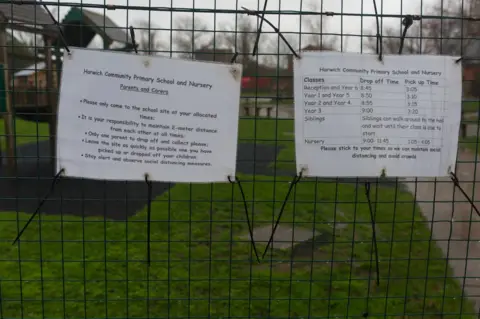 Harwich Community Primary School and Nursery
Parents and Carers
• Please only come to the school site at your allocated
times:
• It is your responsibility to maintain 2-meter distance
from each other at all times:
• Only one parent to drop off and collect please:
• Leave the site as quickly as possible once you have
picked up or dropped off your children.
• Stay alert and observe social distancing measures.
Harwich Community Primary School and Nursery
Classes Drop off Time Pick up Time
Reception and Year 6 8:45 3:05
Year 1 and Year 5 8:50 3:10
Year 2 and Year 4 8:55 3:15
Year 3 9:00 3:20
Siblings Siblings can walk around to the hall
and wait until their class is due to
start
Nursery 9:00 -
Please stick to your times so we can maintain social
distancing and avoid crowds